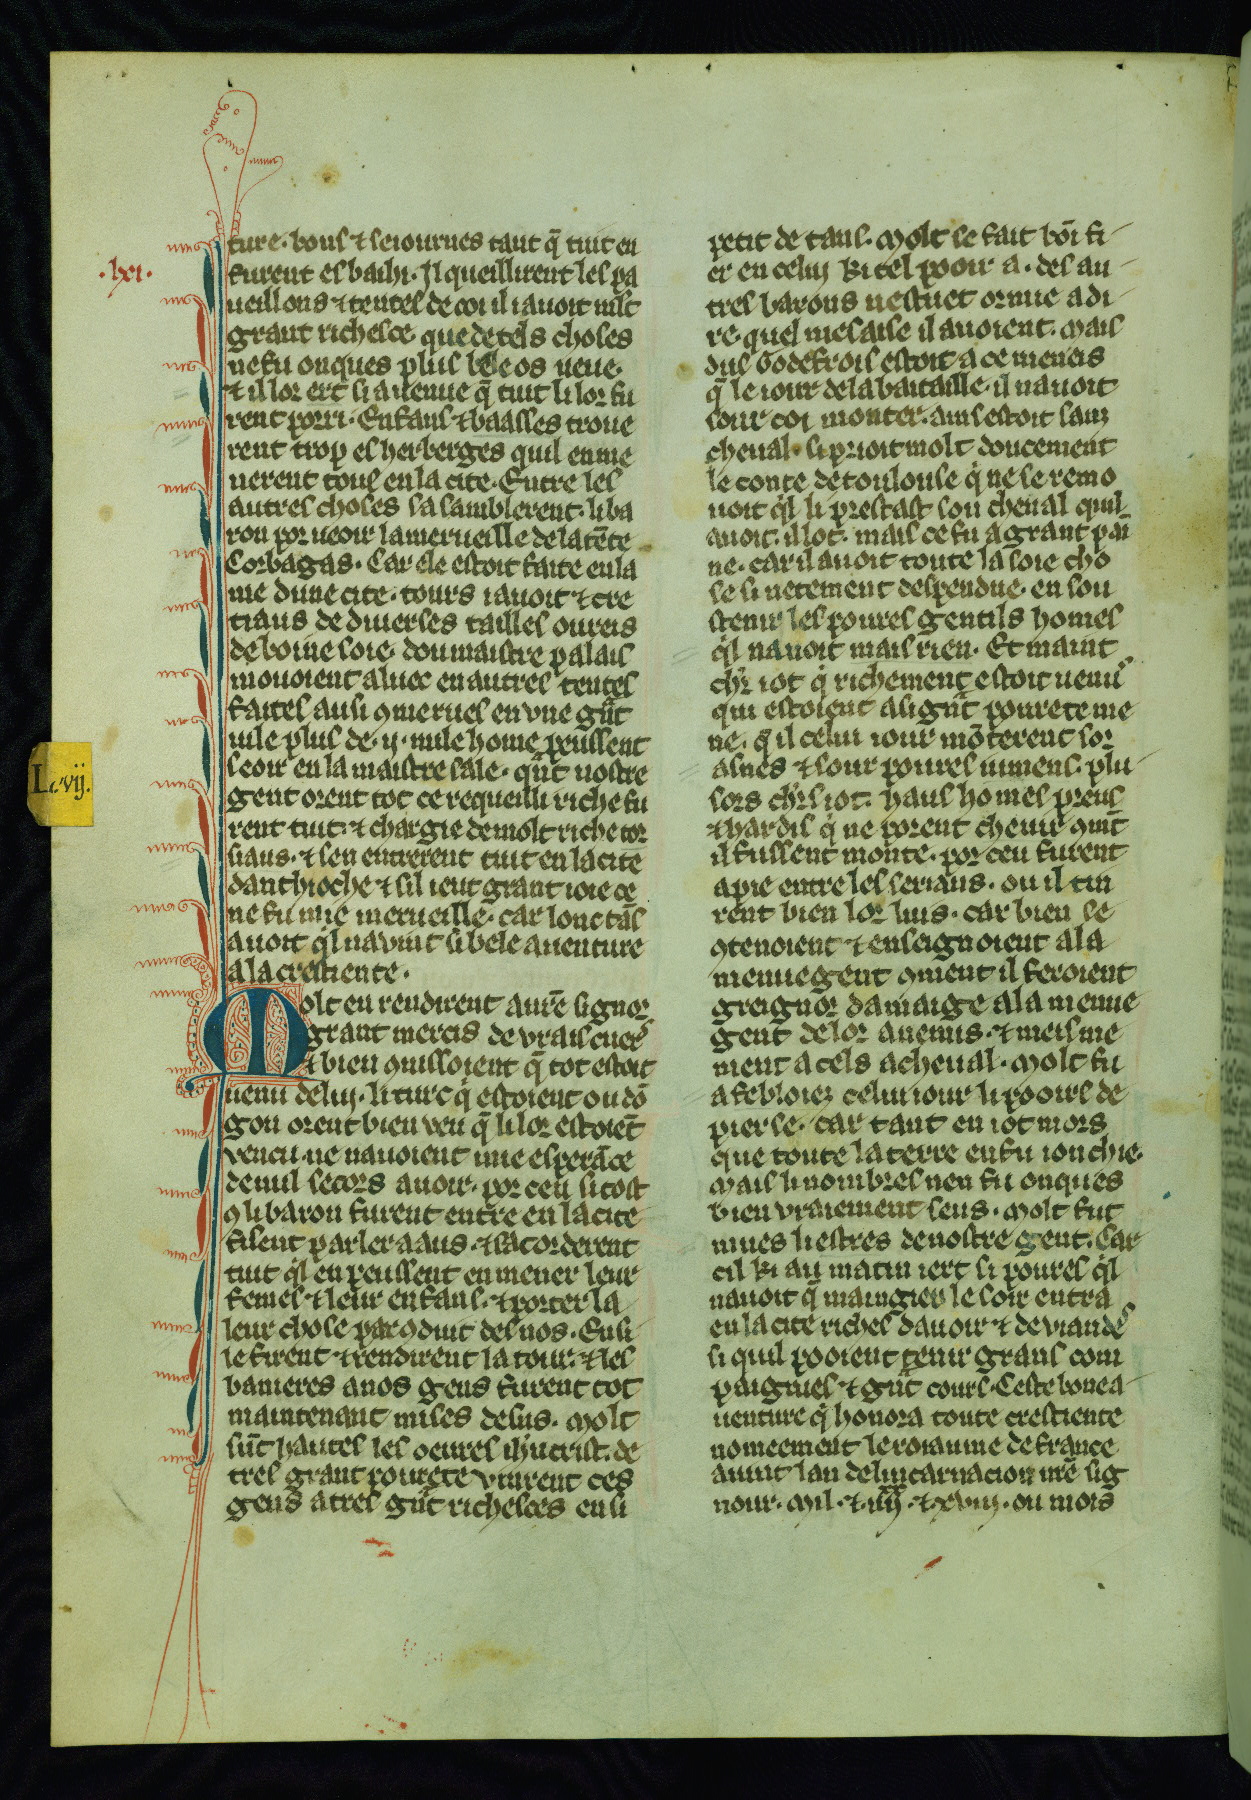 ture. bouf ⁊ seiournes tant q̄ tuit en
·lxi·
furent esbaihi. Il queillirent les pa
ueillons ⁊ tentes de coi il i auoit mlt
grant richesce que de tels choses
ne fu onques plus bele os ueue.
⁊ il lor ert si auenue q̄ tuit li lor fu
rent porri. Enfans ⁊ baasses troue
rent trop es herberges quil enme
nerent tous en la cite. Entre les
autres choses sasamblerent. li ba
ron por ueoir la merueille de la tēte
Corbagas. Car ele estoit faite en la
nie dune cite. tours i auoit ⁊ cre
tiaus de diuerses tailles ourets
de boine soie. dou maistre palais
mouoient aluec en autres tentes
faites ausi ꝯme rues en vne gūt
uile plus de. ij. mile home peussent
seoir en la maistre sale. qūt nostre
Lxvij.
gent orent tot ce requeilli riche fu
rent tuit. ⁊ chargie de molt riche tor
siaus. ⁊ sen entrerent tuit en la cite
danthioche ⁊ sil i eut grant ioie ce
ne fu mie merueille. car lonc tās
auoit q̇l nauint si bele auenture
a la crestiente.
Molt en rendirent a nrē signor
grant mercis de vrais cuers
⁊ bien ꝯnissoient q̄ tot estoit
uenu de lui. li turc q̇ estoient ou dō
gon orent bien veu q̄ li lor estoiēt
vencu. ne nauoient mie esperāce
de nul secors auoir. por ceu si tost
ꝯ li baron furent entre en la cite
fisent parler a aus. ⁊ sacorderent
tuit q̇l en peussent en mener leur
femes ⁊ leur enfans. ⁊ porter la
leur chose par ꝯduit des nos. Ensi
le firent ⁊ rendirent la tour. ⁊ les
banieres a nos gens furent tot
maintenant mises desus. Molt
sūt hautes les oeures ih'ucrist. de
tres grant pourete vinrent ces
gens a tres gūt richesces ensi
petit de tans. Molt se fait bōi fi
er en celui ki tel pooir a. des au
tres barons nestuet ormie a di
re. quel mesaise il auoient. mais
dus Godefrois estoit a ce meneis
q̄ le iour de la bataille. il nauoit
sour coi monter. ains estoit sanz
cheual. si prioit molt doucement
le conte de toulouse q̇ ne se remo
uoit q̇l li prestast son cheual quil
auoit. il lot. mais ce fu a grant pai
ne. car il auoit toute la soie cho
se si netement despendue. en sou
stenir les poures gentils homes
q̇l nauoit mais rien. Et maint
ch'r iot q̇ richement estoit uenus
qui estoient a si gūt pourete me
ne. q̇ il celui iour mōterent sor
asnes ⁊ sour poures iumens. plu
sors ch'rs iot. haus homes preus
⁊ hardis q̇ ne porent cheuir ꝯmt
il fussent monte. por ceu furent
a pie entre les serians. ou il tin
rent bien lor luis. car bien se
ꝯtenoient ⁊ enseignoient a la
menue gent ꝯment il feroient
greignor damaige a la menue
gent de lor anemis. ⁊ meisme
ment a cels a cheual. Molt fu
afebloiez celui iour li pooirs de
pierse. car tant en iot mors
que toute la terre en fu ionchie.
Mais li nombres nen fu onques
bien vraiement seus. Molt fut
mues li estres de nostre gent. Car
cil ki au matin iert si poures q̇l
nauoit q̄ maingier le soir entra
en la cite riches dauoir ⁊ de viandes
si quil pooient tenir grans com
paignies ⁊ gūt cours. Ceste bone a
uenture q̇ honora toute crestiente
nomeement le roiaume de france
auint lan de lincarnacion nrē sig
nour. Mil. ⁊. iiij. ⁊. xviij. ou mois